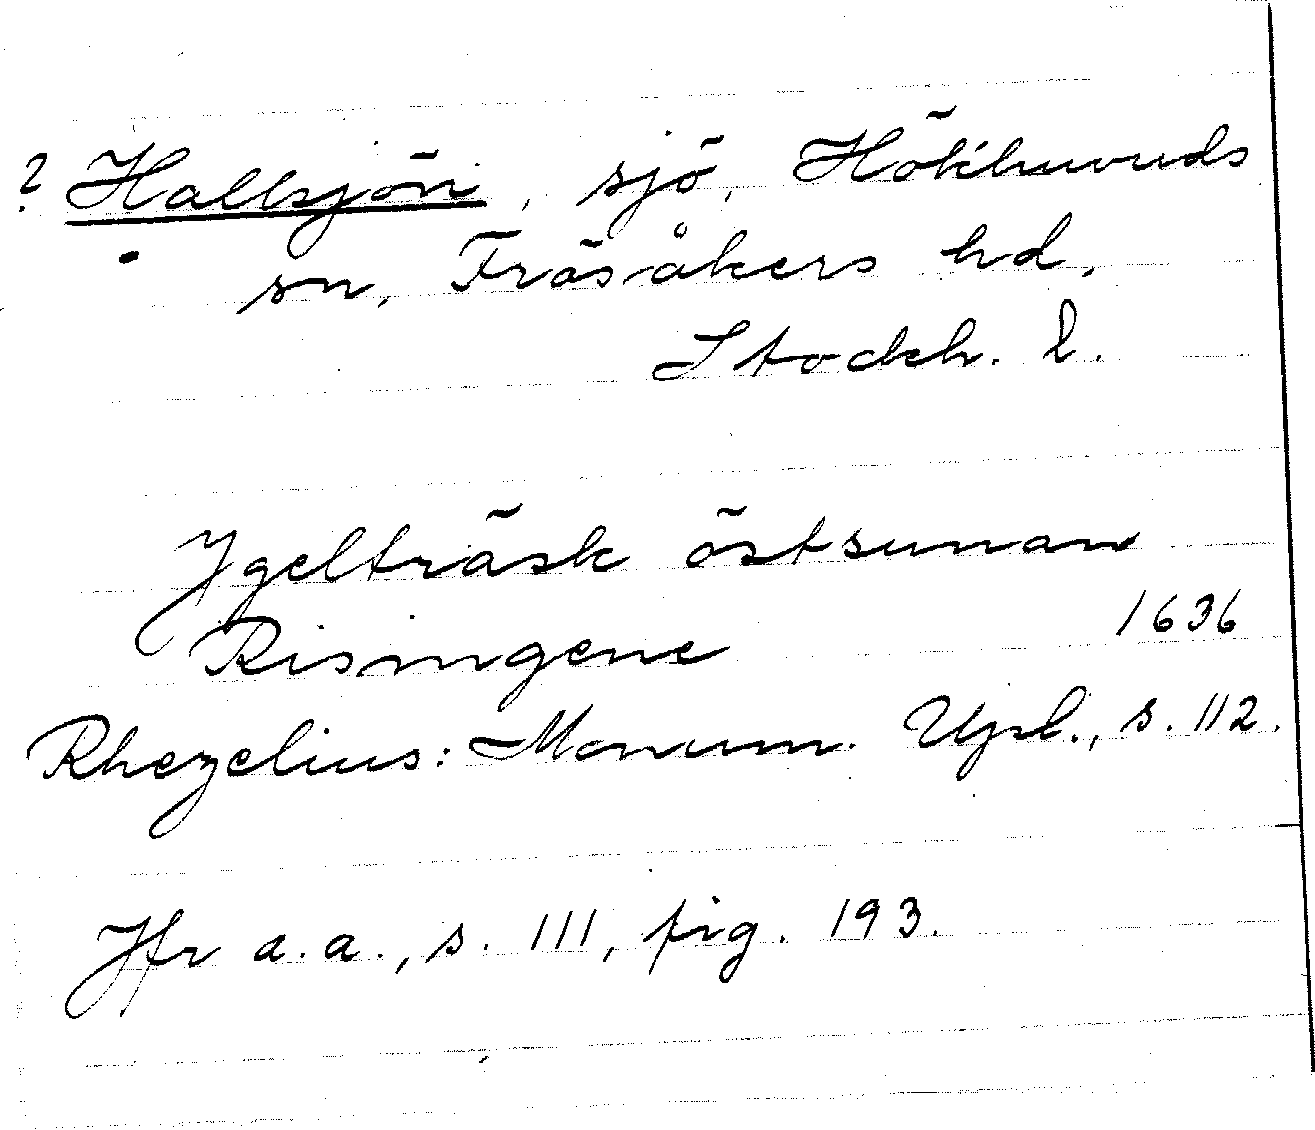 ? Hallsjön, sjö, Hökhuvuds
sn, Frösåkers hd,
Stockh. l.
Igelträsk östsunnan
Risingene 1636
Rhezelius: Monum. Upl., s. 112.
Jfr a.a., s. 111, fig. 193.